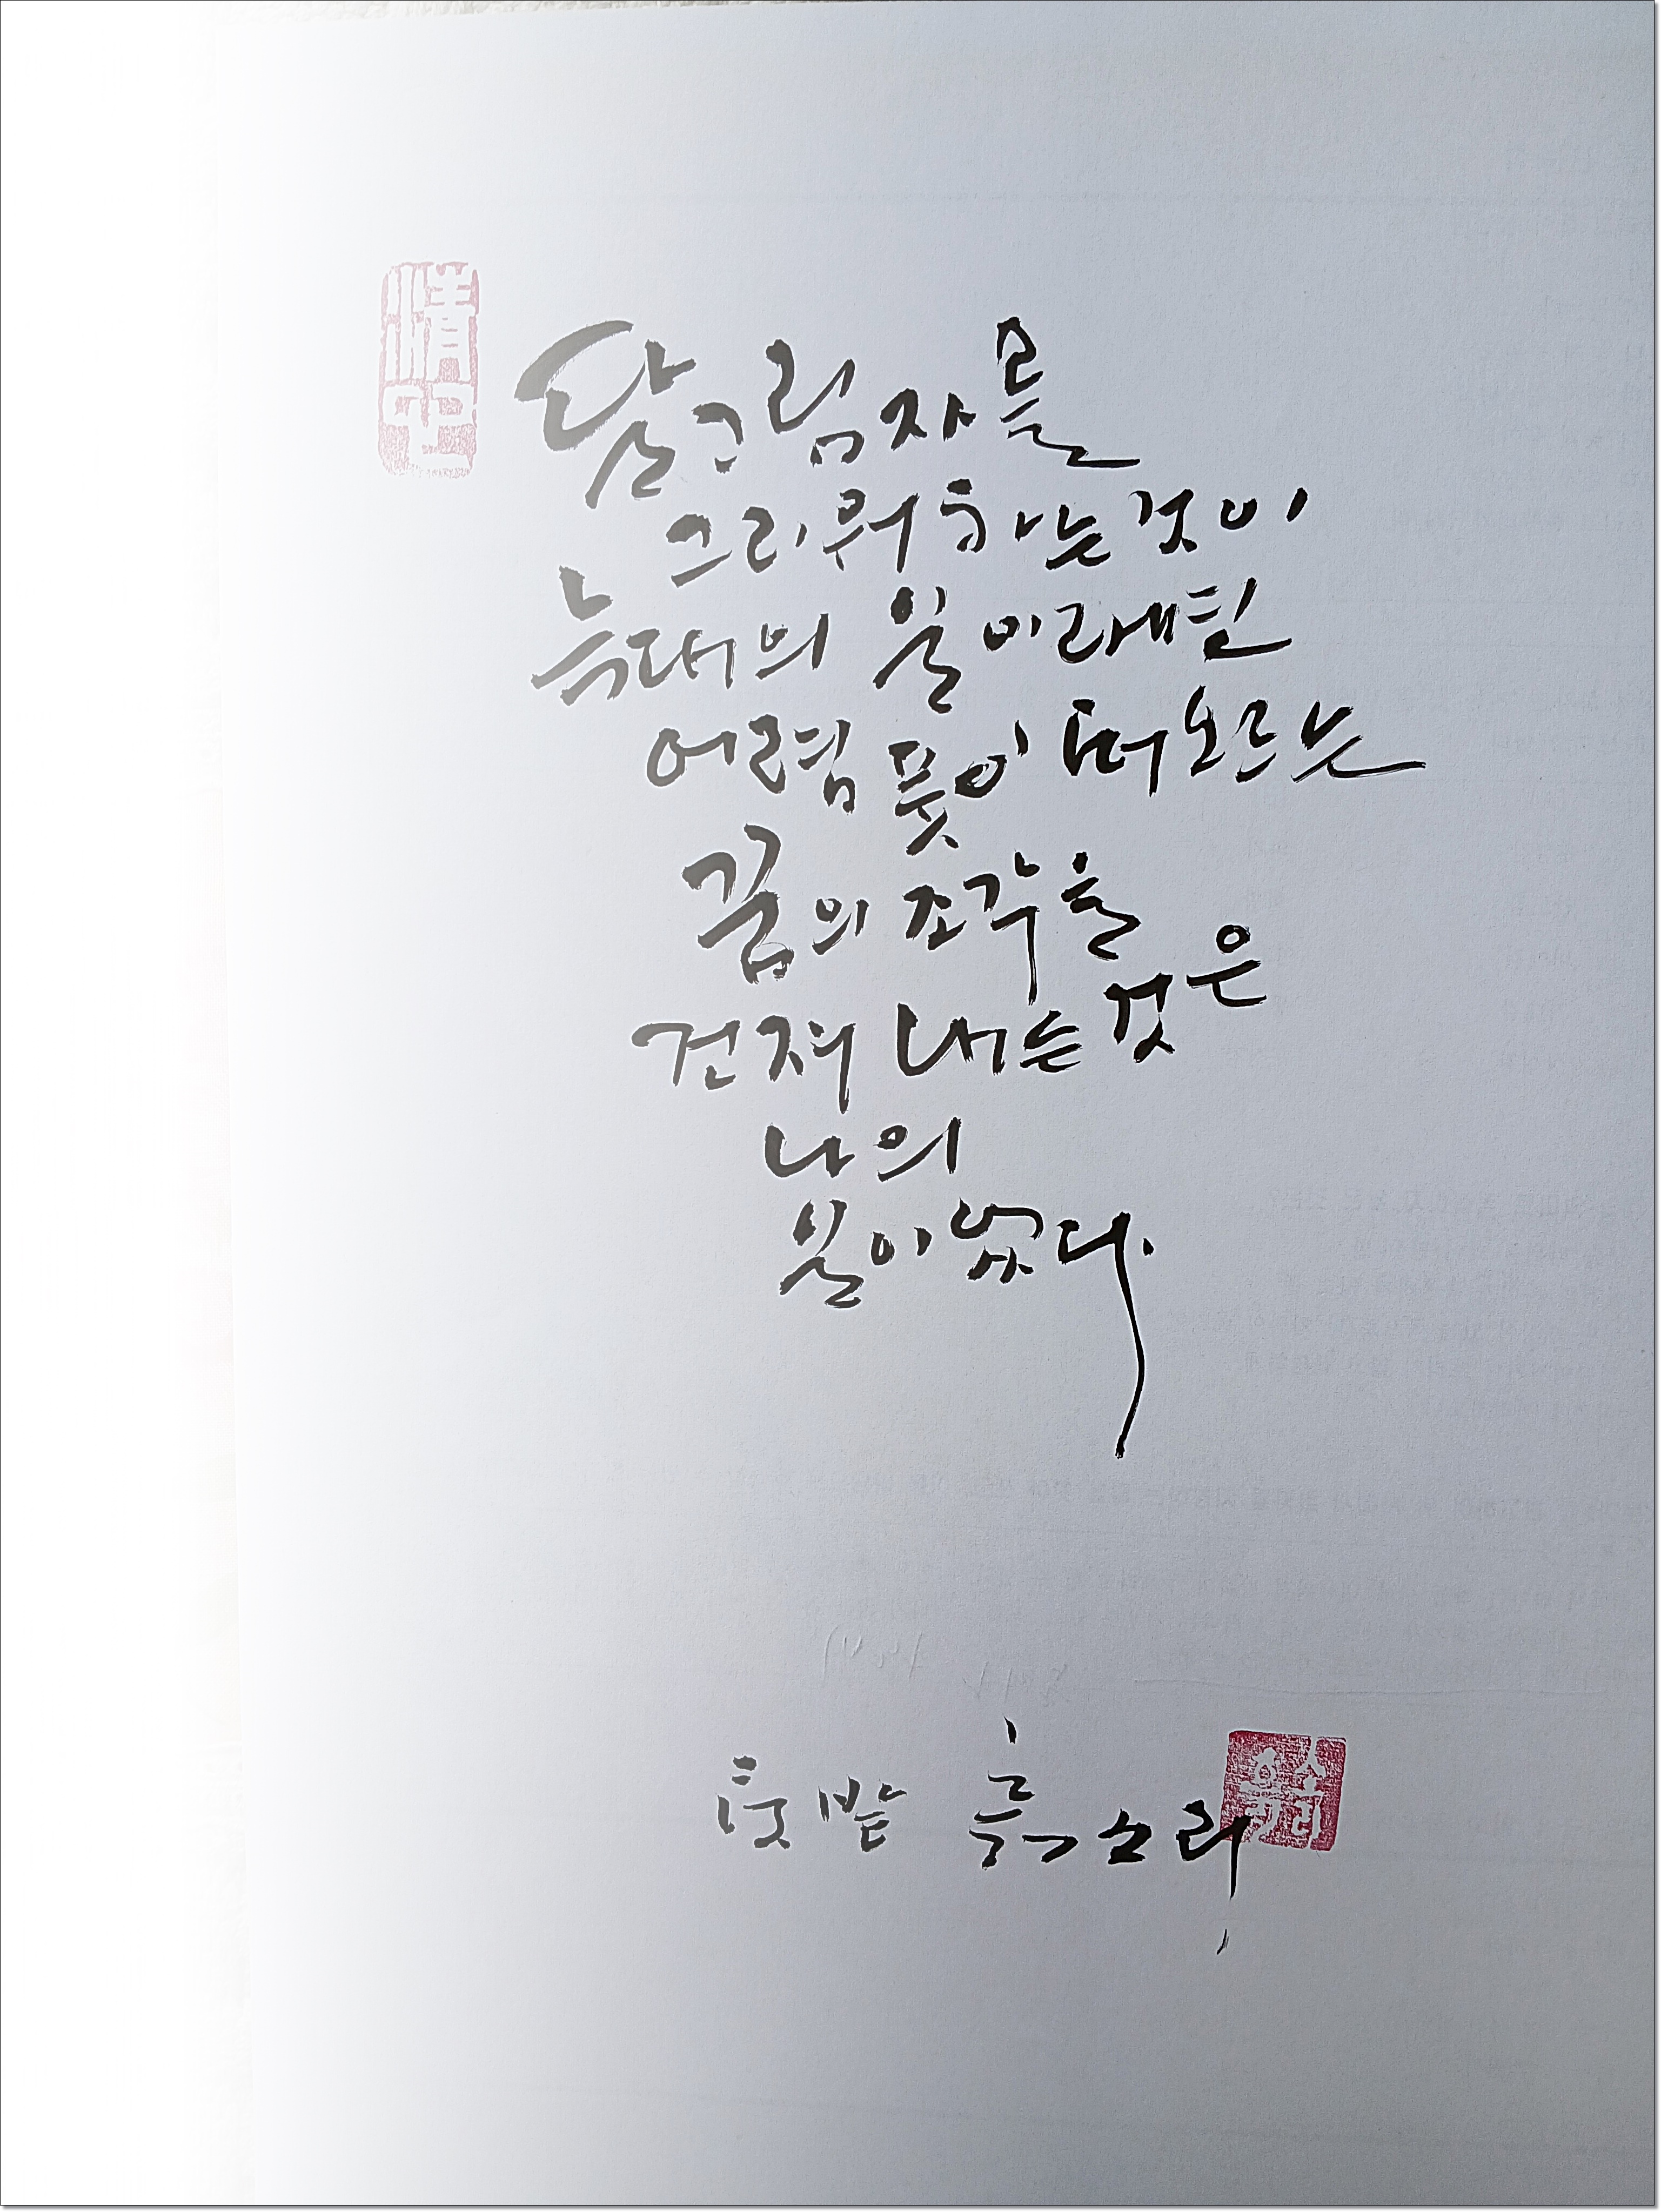 달그림자를
그리워 하는 것이
늑대의 일이라면
어렴풋이 떠오르는
꿈의 조각을
건져 내는 것은
나의
일이었다.
텃밭 흙소리